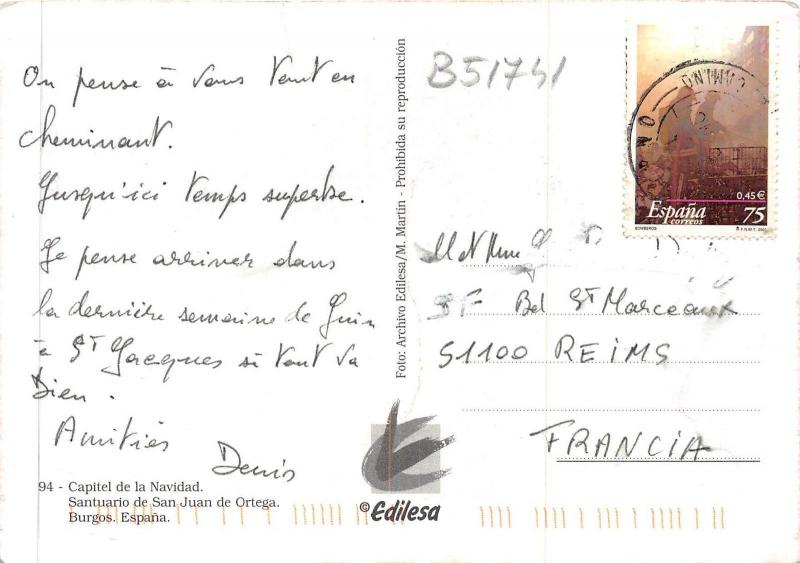 On pense à vous tout en
cheminant.
Jusqu'ici temps superbe.
Je pense arriver dans
la dernière semaine de Juin
à St Jacques si tout va
bien.
Amitiés
Denis
94 - Capitel de la Navidad.
Santuario de San Juan de Ortega.
Burgos. España.
Foto: Archivo Edilesa/M. Martín - Prohibida su reproducción
©Edilesa
B51741
0,45 €
España 75
correos
BOMBEROS
F.N.M.T.
M et Mme
Bd St Marceaux
51100 REIMS
FRANCIA